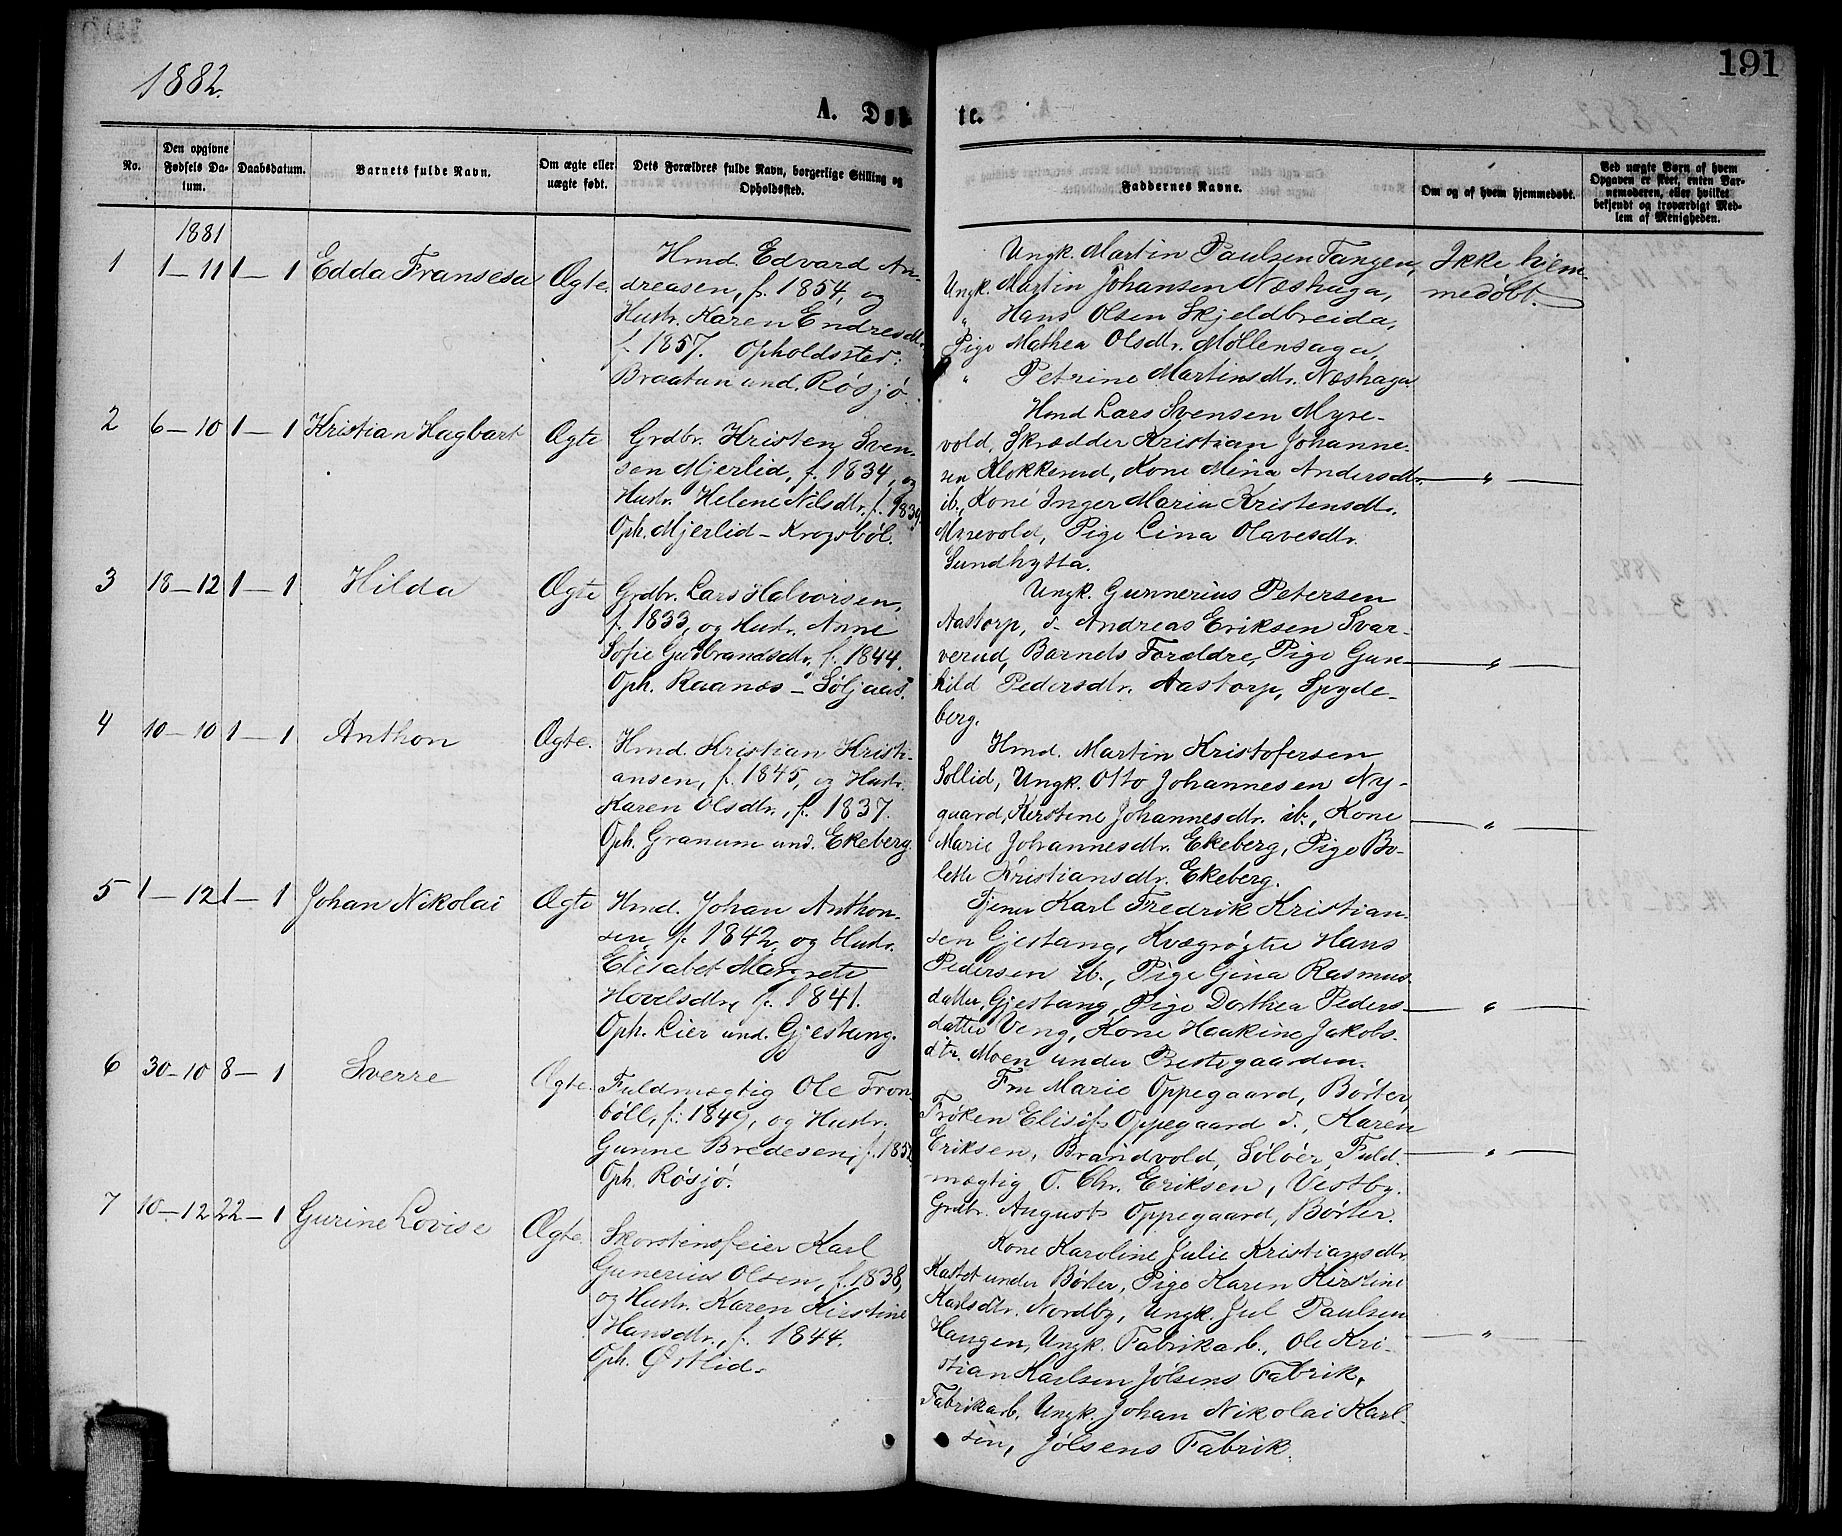 191
1882.
A. Døbte.
No.
Den opgivne Fødsels Datum.
Daabsdatum.
Barnets fulde Navn.
Om ægte eller uægte født.
Dets Forældres fulde Navn, borgerlige Stilling og Opholdssted.
Faddernes Navne.
Om og af hvem hjemmedøbt.
Ved uægte Børn af hvem Opgaven er skeet, enten Barnemoderen, eller hvilket bekjendt og troværdigt Medlem af Menigheden.
1881
1 1—11 1—1 Edda Fransesa Ægte.
Hmd. Edvard An-
dreasen, f. 1854, og
Hustr. Karen Endresdtr.
f. 1857. Opholdssted:
Braatan und. Røsjø.
Ungk. Martin Paulsen Tangen,
Ungk. Martin Johansen Næshaga,
" Hans Olsen Skjeldbreida,
Pige Mathea Olsdtr. Møllensaga,
" Petrine Martinsdtr. Næshaga.
Ikke hjem-
medøbt.
2 6—10 1—1 Kristian Hagbart Ægte
Grdbr. Kristen Sven-
sen Mjerlid, f. 1834, og
Hustr. Helene Nilsdtr. f. 1839.
Oph. Mjerlid – Krogsbøl.
Hmd Lars Svensen Myre-
vold, Skrædder Kristian Johanne-
sen Klokkerud, Kone Mina Andersdtr.
ib., Kone Inger Maria Kristensdtr.
Myrevold, Pige Lina Olavesdtr.
Sundhytta.
— " —
3 18—12 1—1 Hilda Ægte
Grdbr. Lars Halvorsen,
f. 1833, og Hustr. Anne
Sofie Gudbrandsdtr, f. 1844.
Oph. Raanæs – Søljaas.
Ungk. Gunnerius Petersen
Aastorp, d. Andreas Eriksen Svar-
verud, Barnets Forældre, Pige Gun-
hild Pedersdtr. Aastorp, Spyde-
berg.
— " —
4 10—10 1—1 Anthon Ægte.
Hmd Kristian Kristi-
ansen, f. 1845, og Hustr.
Karen Olsdtr., f. 1837.
Oph. Granum und. Ekeberg.
Hmd. Martin Kristofersen
Sollid, Ungk. Otto Johannesen Ny-
gaard, Kirstine Johannesdtr. ib., Kone
Marie Johannesdtr. Ekeberg, Pige Bo-
lette Kristiansdtr. Ekeberg.
— " —
5 1—12 1—1 Johan Nikolai Ægte
Hmd. Johan Anthon-
sen, f. 1842, og Hustr.
Elisabet Margrete
Hovelsdtr, f. 1841.
Oph. Lier und. Gjestang.
Tjener Karl Fredrik Kristian-
sen Gjestang, Kvægrøgter Hans
Pedersen ib., Pige Gina Rasmus-
datter, Gjestang, Pige Dorthea Peders-
datter Veng, Kone Haakine Jakobs-
dtr. Moen under Prestegaarden.
— " —
6 30—10 8—1 Sverre Ægte.
Fuldmægtig Ole Tron-
bøll, f. 1849, og Hustr.
Gunne Bredesen, f. 185
Oph. Røsjø.
Fru Marie Oppegaard, Børter,
Frøken Elisif Oppegaard d., Karen
Eriksen, Brandvold, Solør, Fuld-
mægtig O. Chr. Eriksen, Vestby.
Grdbr. August Oppegaard, Børter.
— " —
7 10—12 22—1 Gurine Lovise Ægte.
Skorstensfeier Karl
Gunerius Olsen, f. 1838,
og Hustr. Karen Kirstine
Hansdtr., f. 1844.
Oph. Østlid.
Kone Karoline Julie Kristiansdtr.
Kastet under Børter, Pige Karen Kirstine
Karlsdtr. Nordby, Ungk. Jul Paulsen
Haugen, Ungk. Fabrikarb. Ole Kri-
stian Karlsen Jølsens Fabrik,
Fabrikarb. Ungk. Johan Nikolai Karl-
sen, Jølsens Fabrik.
— " —